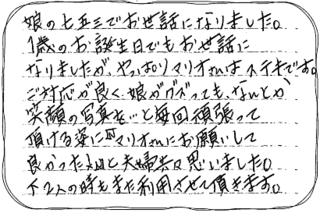 娘の七五三でお世話になりました。
1歳のお誕生日でもお世話に
なりましたが、やっぱりマリオさんはステキです。
ご対応が良く、娘がグズっても、なんとか
笑顔の写真を…と毎回頑張って
頂ける姿にマリオさんにお願いして
良かったねと夫婦共々思いました。
下2人の時もまた利用させて頂きます。